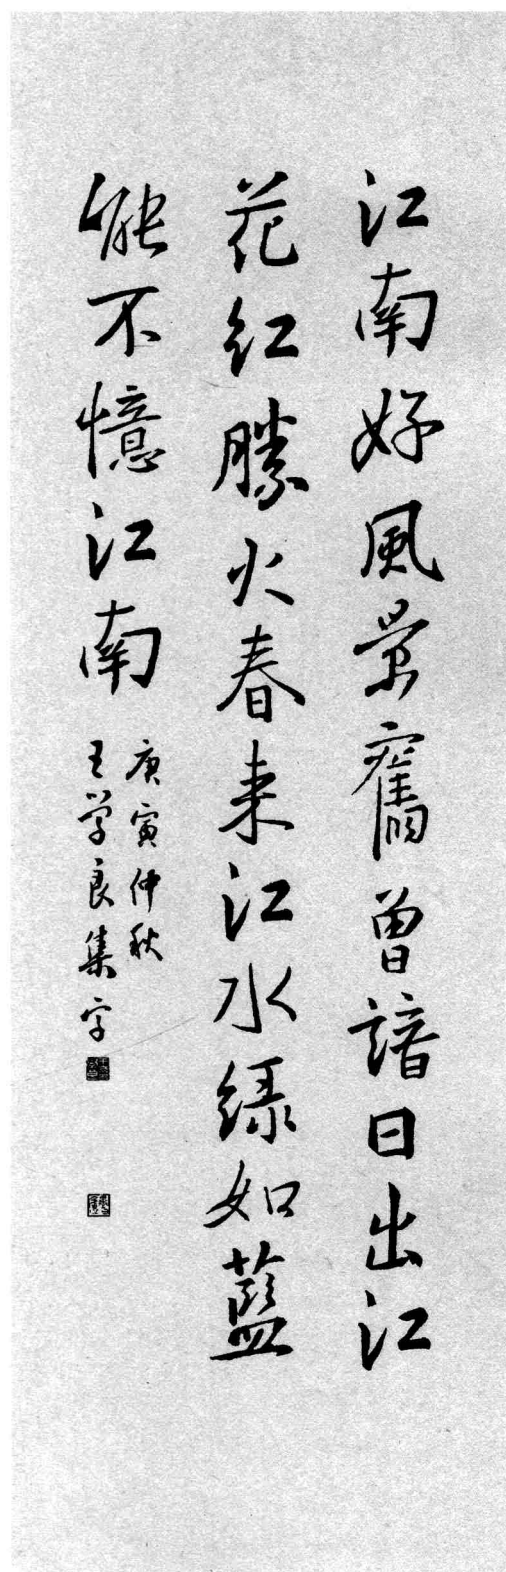 江南好風景舊曾諳日出江
花红勝火春来江水緑如藍
能不憶江南
庚寅仲秋
王学良集字